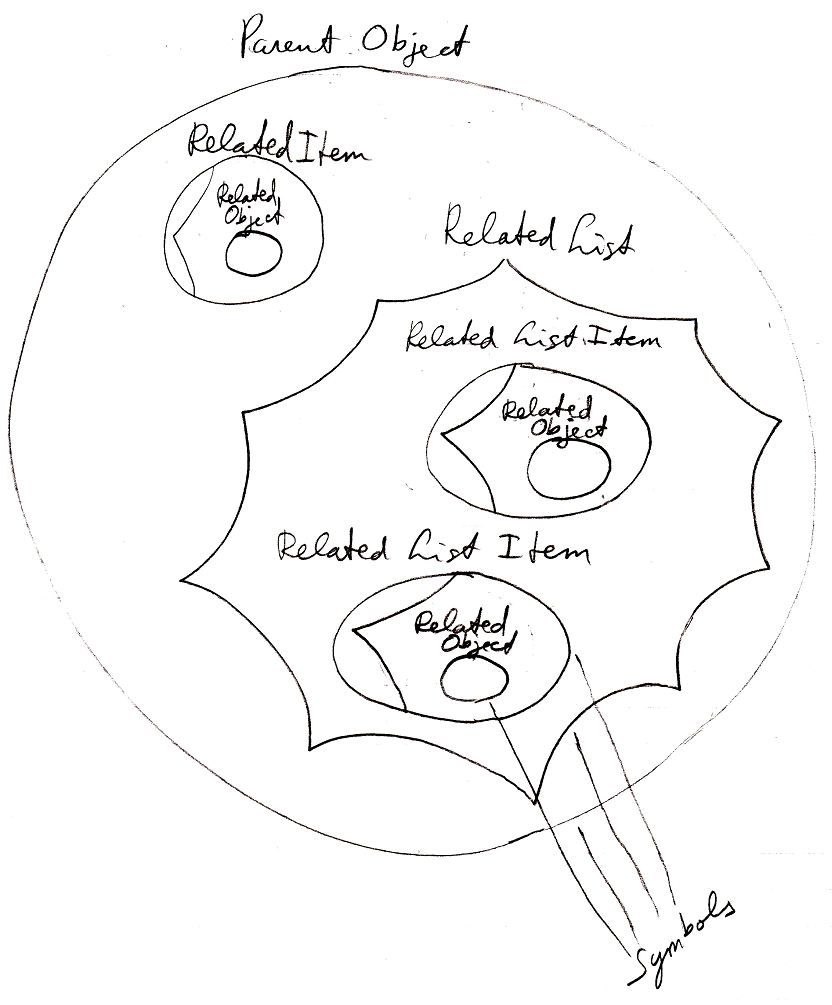 Parent Object
Related Item
Related
Object
Related List
Related List Item
Related
Object
Related List Item
Related
Object
Symbols